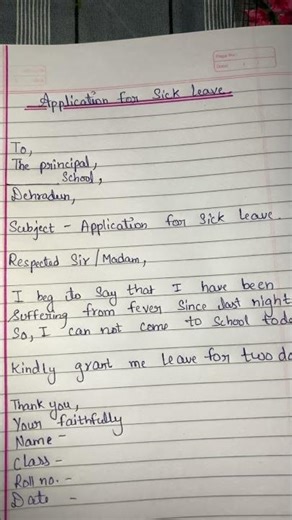 Application for Sick Leave
To,
The principal,
School,
Dehradun,
Subject - Application for Sick leave.
Respected Sir/Madam,
I beg to say that I have been
Suffering from fever since last night
So, I can not come to School toda
Kindly grant me leave for two da
Thank you,
Your faithfully
Name -
Class -
Roll no. -
Date -